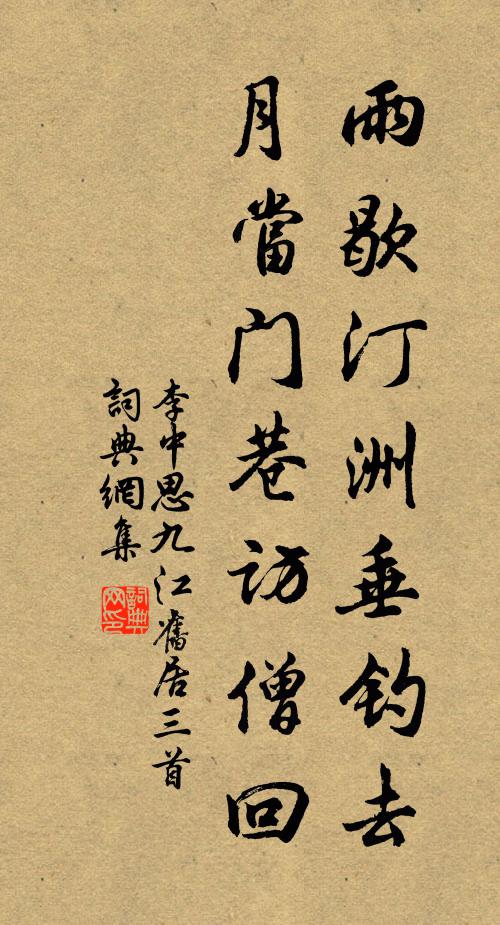 雨歇汀洲垂钓去
月當门巷訪僧回
李中思九江舊居三首
詞典網集
詞典
网印